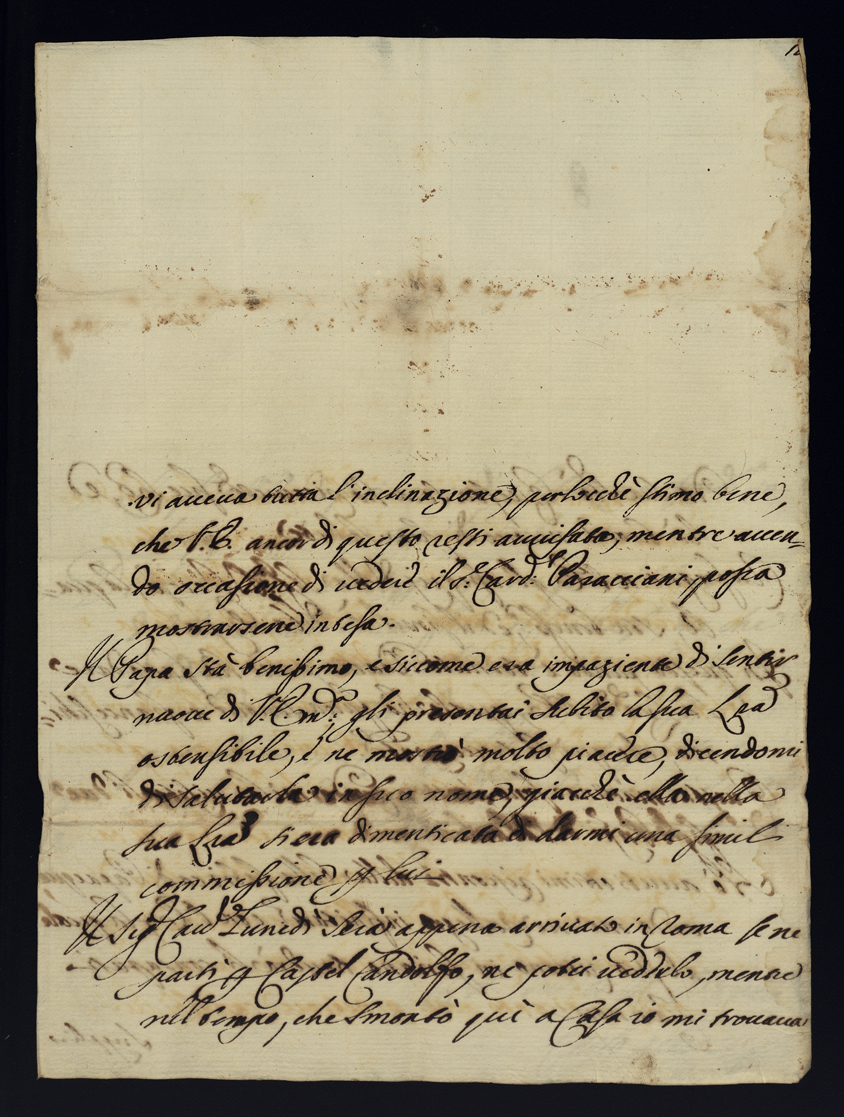 12
vi aveva tutta l'inclinazione, perlocchè stimo bene,
che V. E. ancor di questo resti avvisata, mentre aven-
do occasione di vedere il Sr. Card. Paracciani, possa
mostrarsene intesa.
Il Papa stà benissimo, e siccome era impaziente di sentir
nuove di V. E. gli presentai subito la sua Lra
ostensibile, e ne mostrò molto piacere, dicendomi
di salutarla in suo nome, giacchè ella nella
sua Lra si era dimenticata di darmi una simil
commissione p lui.
Il Sig Lunedì sera appena arrivato in Roma se ne
partì p Castel Gandolfo, nè potei vederlo, mentre
nel tempo, che smontò quì a Casa io mi trovava